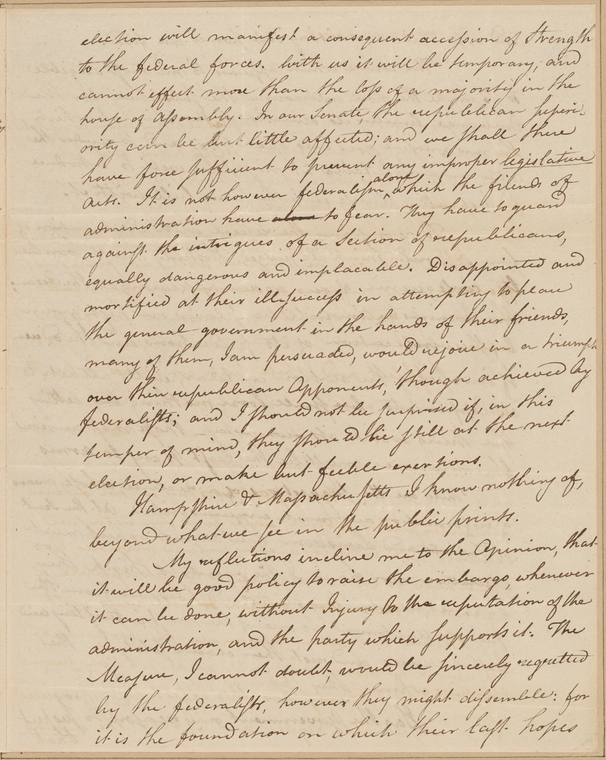 election will manifest a consequent accession of Strength
to the federal forces. With us it will be temporary, and
cannot effect more than the loss of a majority in the
house of Assembly. In our Senate the republican superi-
ority can be but little affected; and we shall there
have force sufficient to prevent any improper legislative
acts. It is not however federalism alone, which the friends of
administration have alone to fear. They have to guard
against the intrigues of a Section of republicans,
equally dangerous and implacable. Disappointed and
mortified at their ill success in attempting to place
the general government in the hands of their friends,
many of them, I am persuaded, would rejoice in a triumph
over their republican Opponents, though achieved by
federalists; and I should not be surprised if, in this
temper of mind, they should lie still at the next
election, or make but feeble exertions.
Hampshire & Massachusetts I know nothing of,
beyond what we see in the public prints.
My reflections incline me to the Opinion, that
it will be good policy to raise the embargo, whenever
it can be done, without Injury to the reputation of the
administration, and the party which supports it. The
Measure, I cannot doubt, would be sincerely regretted
by the federalists, however they might dissemble: for
it is the foundation on which their last hopes